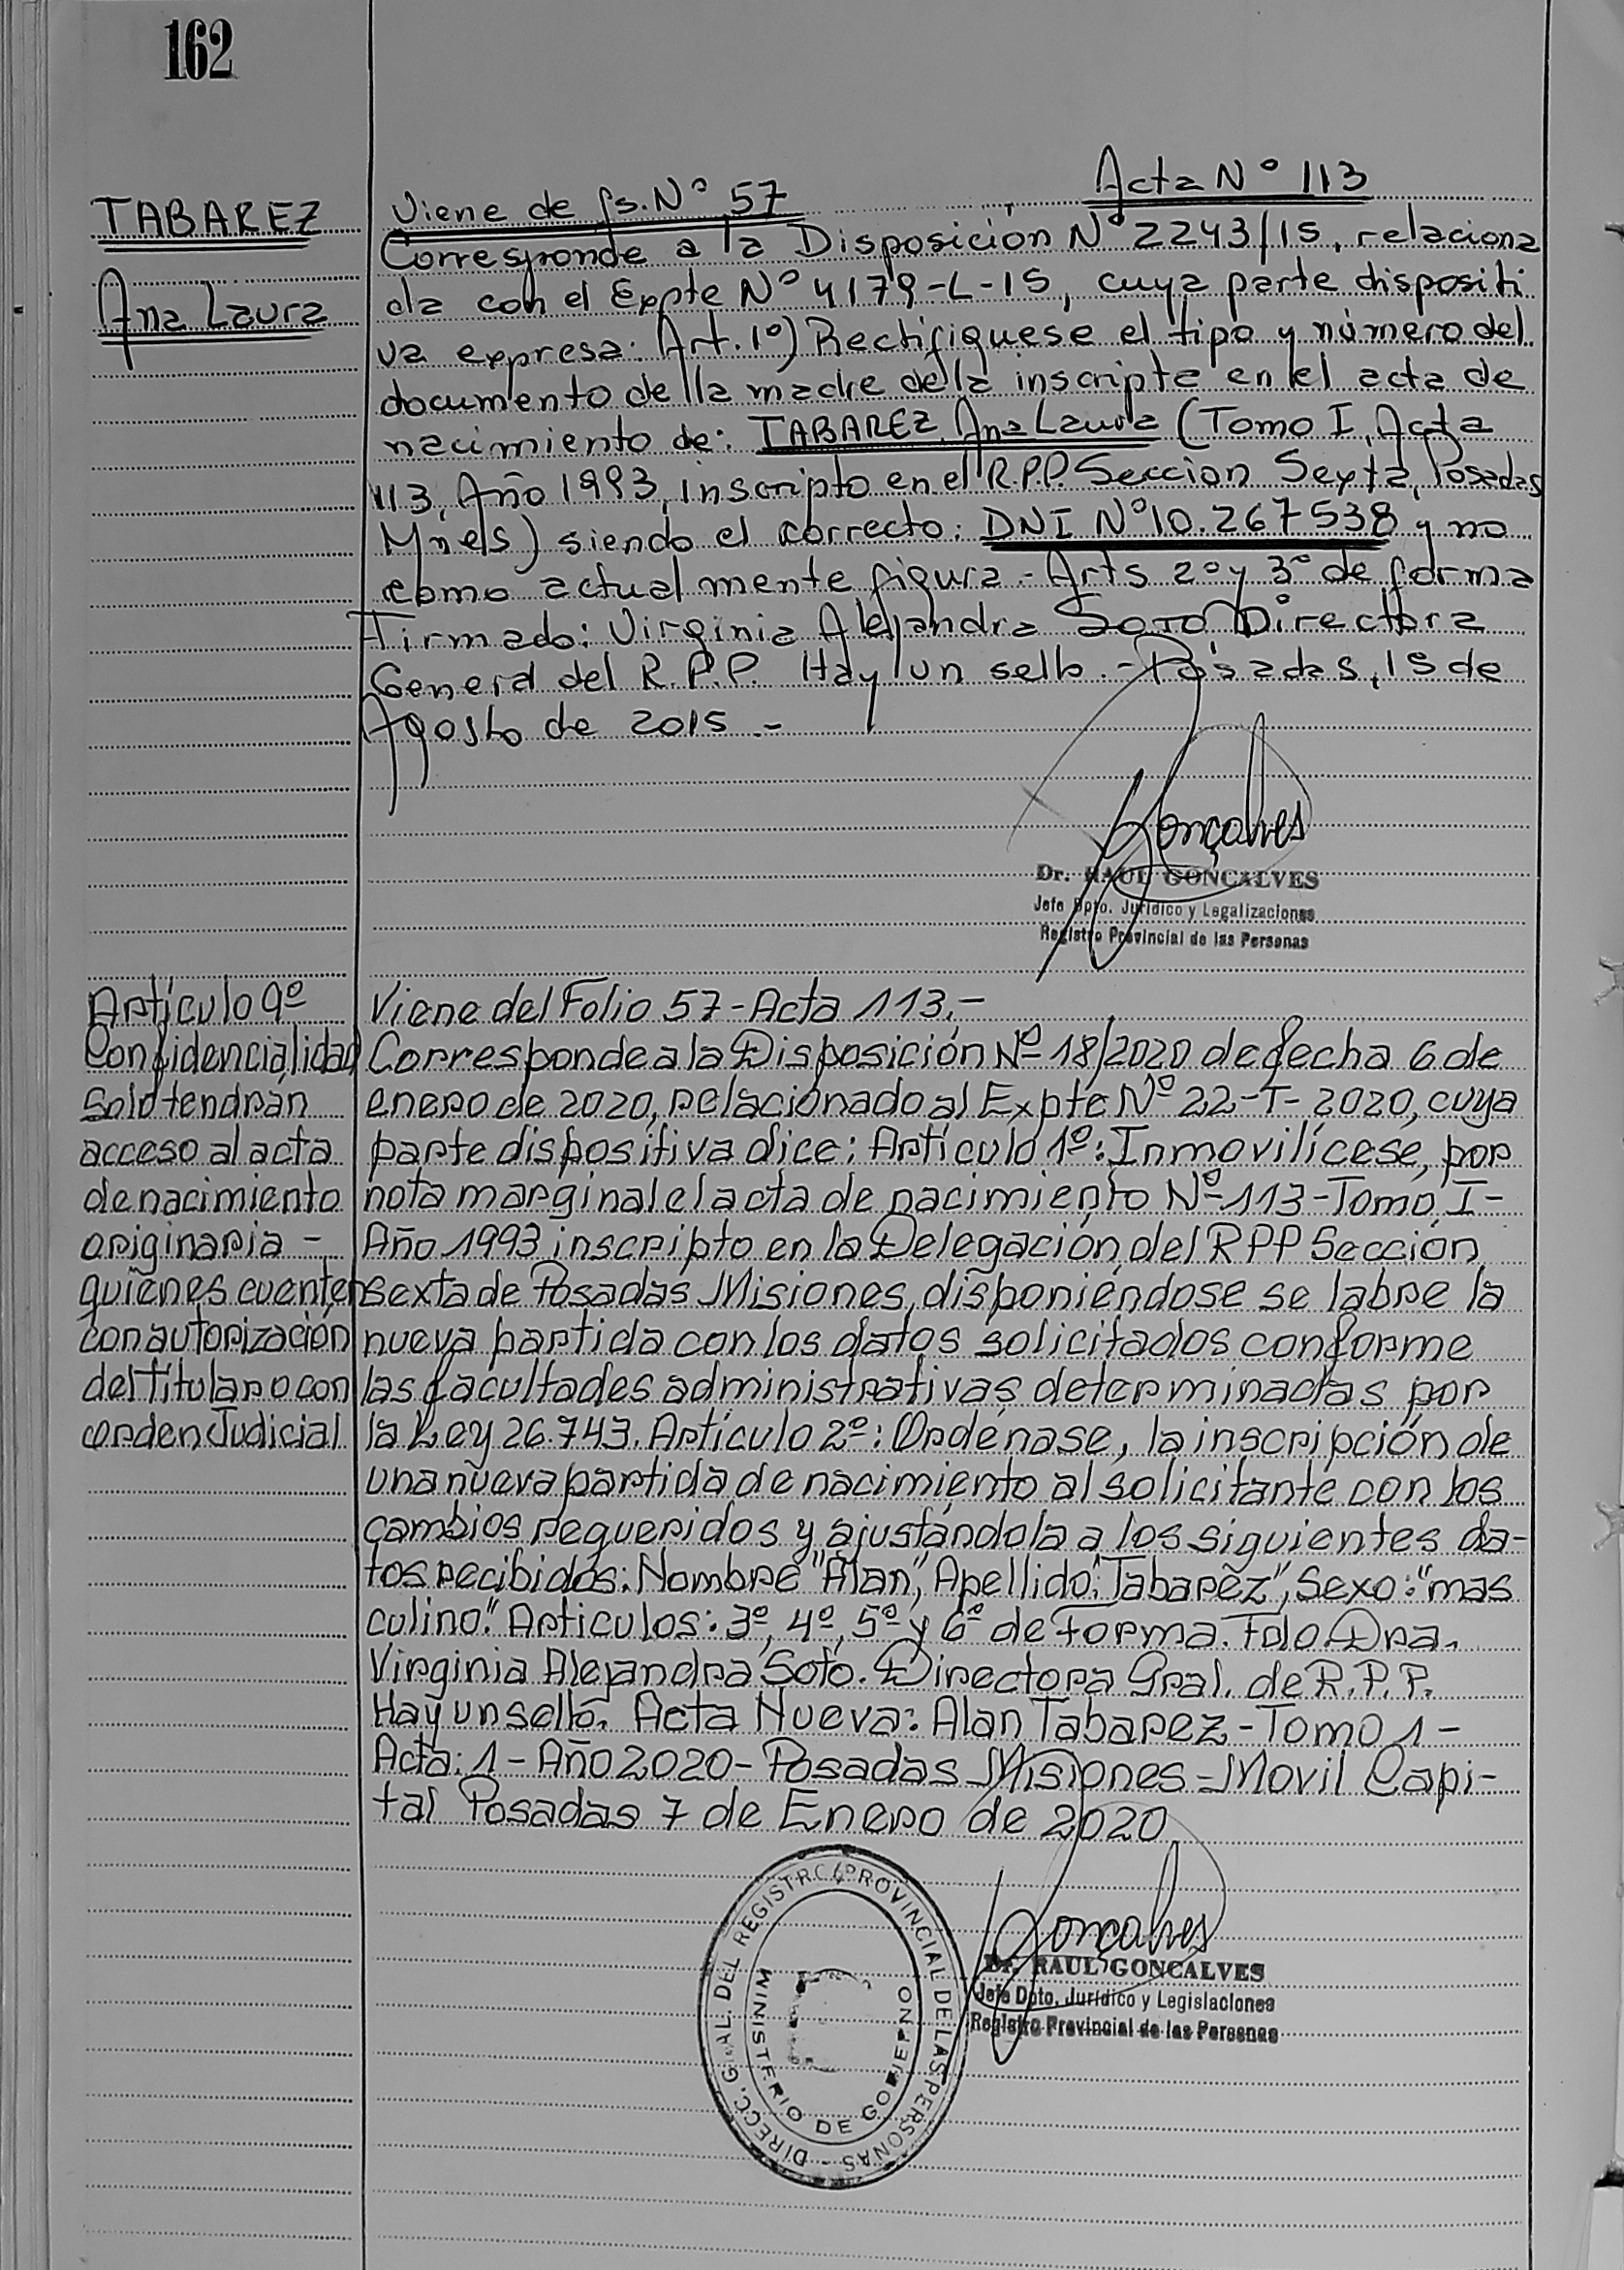 162
TABAREZ
Ana Laura
Viene de fs. Nº 57
Acta Nº 113
Corresponde a la Disposición Nº 2243/15, relaciona
da con el Expte Nº 4179-L-15, cuya parte dispositi
va expresa: Art. 1º) Rectifiquese el tipo y número del
documento de la madre de la inscripta en el acta de
nacimiento de: TABAREZ, Ana Laura (Tomo I, Acta
113, Año 1993, inscripto en el R.P.P. Seccion Sexta, Posadas
Mnes) siendo el correcto: DNI Nº 10.267538 y no
como actualmente figura.- Arts 2º y 3º de forma
Firmado: Virginia Alejandra SOTO Directora
General del R.P.P. Hay un sello.- Posadas, 15 de
Agosto de 2015.-
Gonçalves
Dr. RAUL GONCALVES
Jefe Dpto. Jurídico y Legalizaciones
Registro Provincial de las Personas
Artículo 9º
Confidencialidad
Solo tendrán
acceso al acta
de nacimiento
originaria -
quienes cuenten
con autorización
del Titular o con
orden Judicial
Viene del Folio 57 - Acta 113.-
Corresponde a la Disposición Nº 18/2020 de fecha 6 de
enero de 2020, relacionado al Expte Nº 22-T-2020, cuya
parte dispositiva dice: Artículo 1º: Inmovilícese, por
nota marginal el acta de nacimiento Nº 113-Tomo I-
Año 1993 inscripto en la Delegación del RPP Sección
Sexta de Posadas Misiones, disponiéndose se labre la
nueva partida con los datos solicitados conforme
las facultades administrativas determinadas por
la Ley 26.743. Artículo 2º: Ordénase, la inscripción de
una nueva partida de nacimiento al solicitante con los
cambios requeridos y ajustándola a los siguientes da-
tos recibidos: Nombre "Alan", Apellido: "Tabarez", Sexo: "mas
culino." Articulos: 3º, 4º, 5º y 6º de Forma. Fdo Dra.
Virginia Alejandra Soto. Directora Gral. de R.P.P.
Hay un sello. Acta Nueva: Alan Tabarez - Tomo 1 -
Acta: 1 - Año 2020 - Posadas Misiones - Movil Capi-
tal Posadas 7 de Enero de 2020
Gonçalves
Dr. RAUL GONCALVES
Jefe Dpto. Jurídico y Legislaciones
Registro Provincial de las Personas
DIRECC. GRAL. DEL REGISTRO PROVINCIAL DE LAS PERSONAS -
MINISTERIO DE GOBIERNO